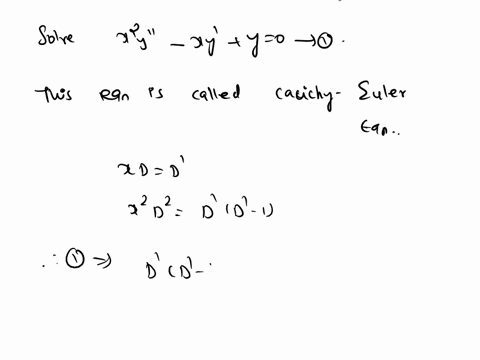 Solve x²y" - xy' + y = 0 → ①.
This Eqn is called Cauchy- Euler
Eqn..
xD = D'
x² D² = D' (D' - 1)
∴ ① ⇒ D' (D' -